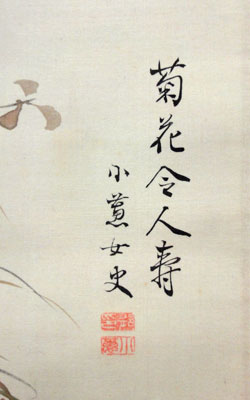 菊花令人壽
小蕙女史